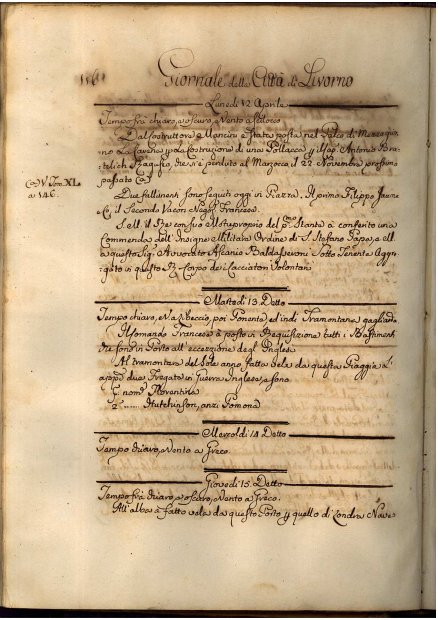 156
Giornale della Città di Livorno
Lunedì 12 Aprile
Tempo frà chiaro, e oscuro, e Vento a Scilocco
Dal Costruttore Mancini è stata posta nel Palco di Mezzogior-
no La Caverna p. la costruzione di una Pollacca
, che si è perduto al Marzocco il 22. Novembre prossimo
passato
V. Tom. XL
a 146.
Due fallimenti sono seguiti oggi in Piazza. Il primo Filippo Jaume
e C. il Secondo Vacon Negoz. Francese.
S. e II. Re con suo Motuproprio del p.mo Stante à conferito una
Commenda dell'Insigne e Militare Ordine di S. Stefano Papa, e M.
a questo Sig. Avvocato Ascanio Baldasseroni Sotto Tenente Aggre-
gato in questo R. Corpo dei Cacciatori Volontari
Martedì 13. Detto
Tempo chiaro, Ven. Libeccio, poi Ponente, ed indi Tramontana gagliarda
Il Comando Francese à posto in Requisizione tutti i Bastimenti
che sono in Porto all'eccezzione degl'Inglesi
Al tramontare del Sole anno fatta vela da questa Piaggia l'
appo due Fregate in Guerra Inglesi, e sono
1. nom.e Florentina
2. ...... Hutchinson, anzi Pomona
Mercoldì 14. Detto
Tempo chiaro, Vento a Greco
Giovedì 15. Detto
Tempo frà chiaro, e oscuro, Vento a Greco.
All'alba à fatto vela da questo Porto p. quello di Londra Nave